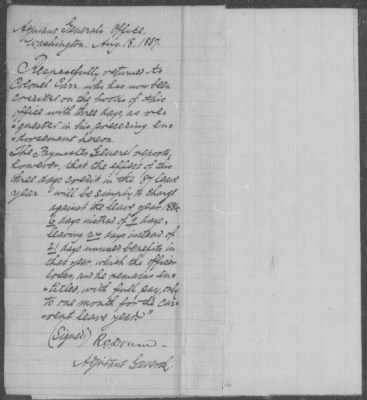 Adjutant General's Office,
Washington, Aug. 18, 1887.
Respectfully returned to
Colonel Carr, who has now been
credited on the books of this
office with three days, as re-
quested in his preceding en-
dorsement hereon.
The Paymaster General reports,
however, that the effect of this
three days credit in the 87 leave
year "will be simply to charge
against the leave year, 1886
6 days instead of 9 days,
leaving 24 days instead of
21 days unused benefits in
that year, which the officer
loses, and he remains en-
titled, with full pay, only
to one month for the cur-
rent leave year."
(Signed)
Adjutant General.